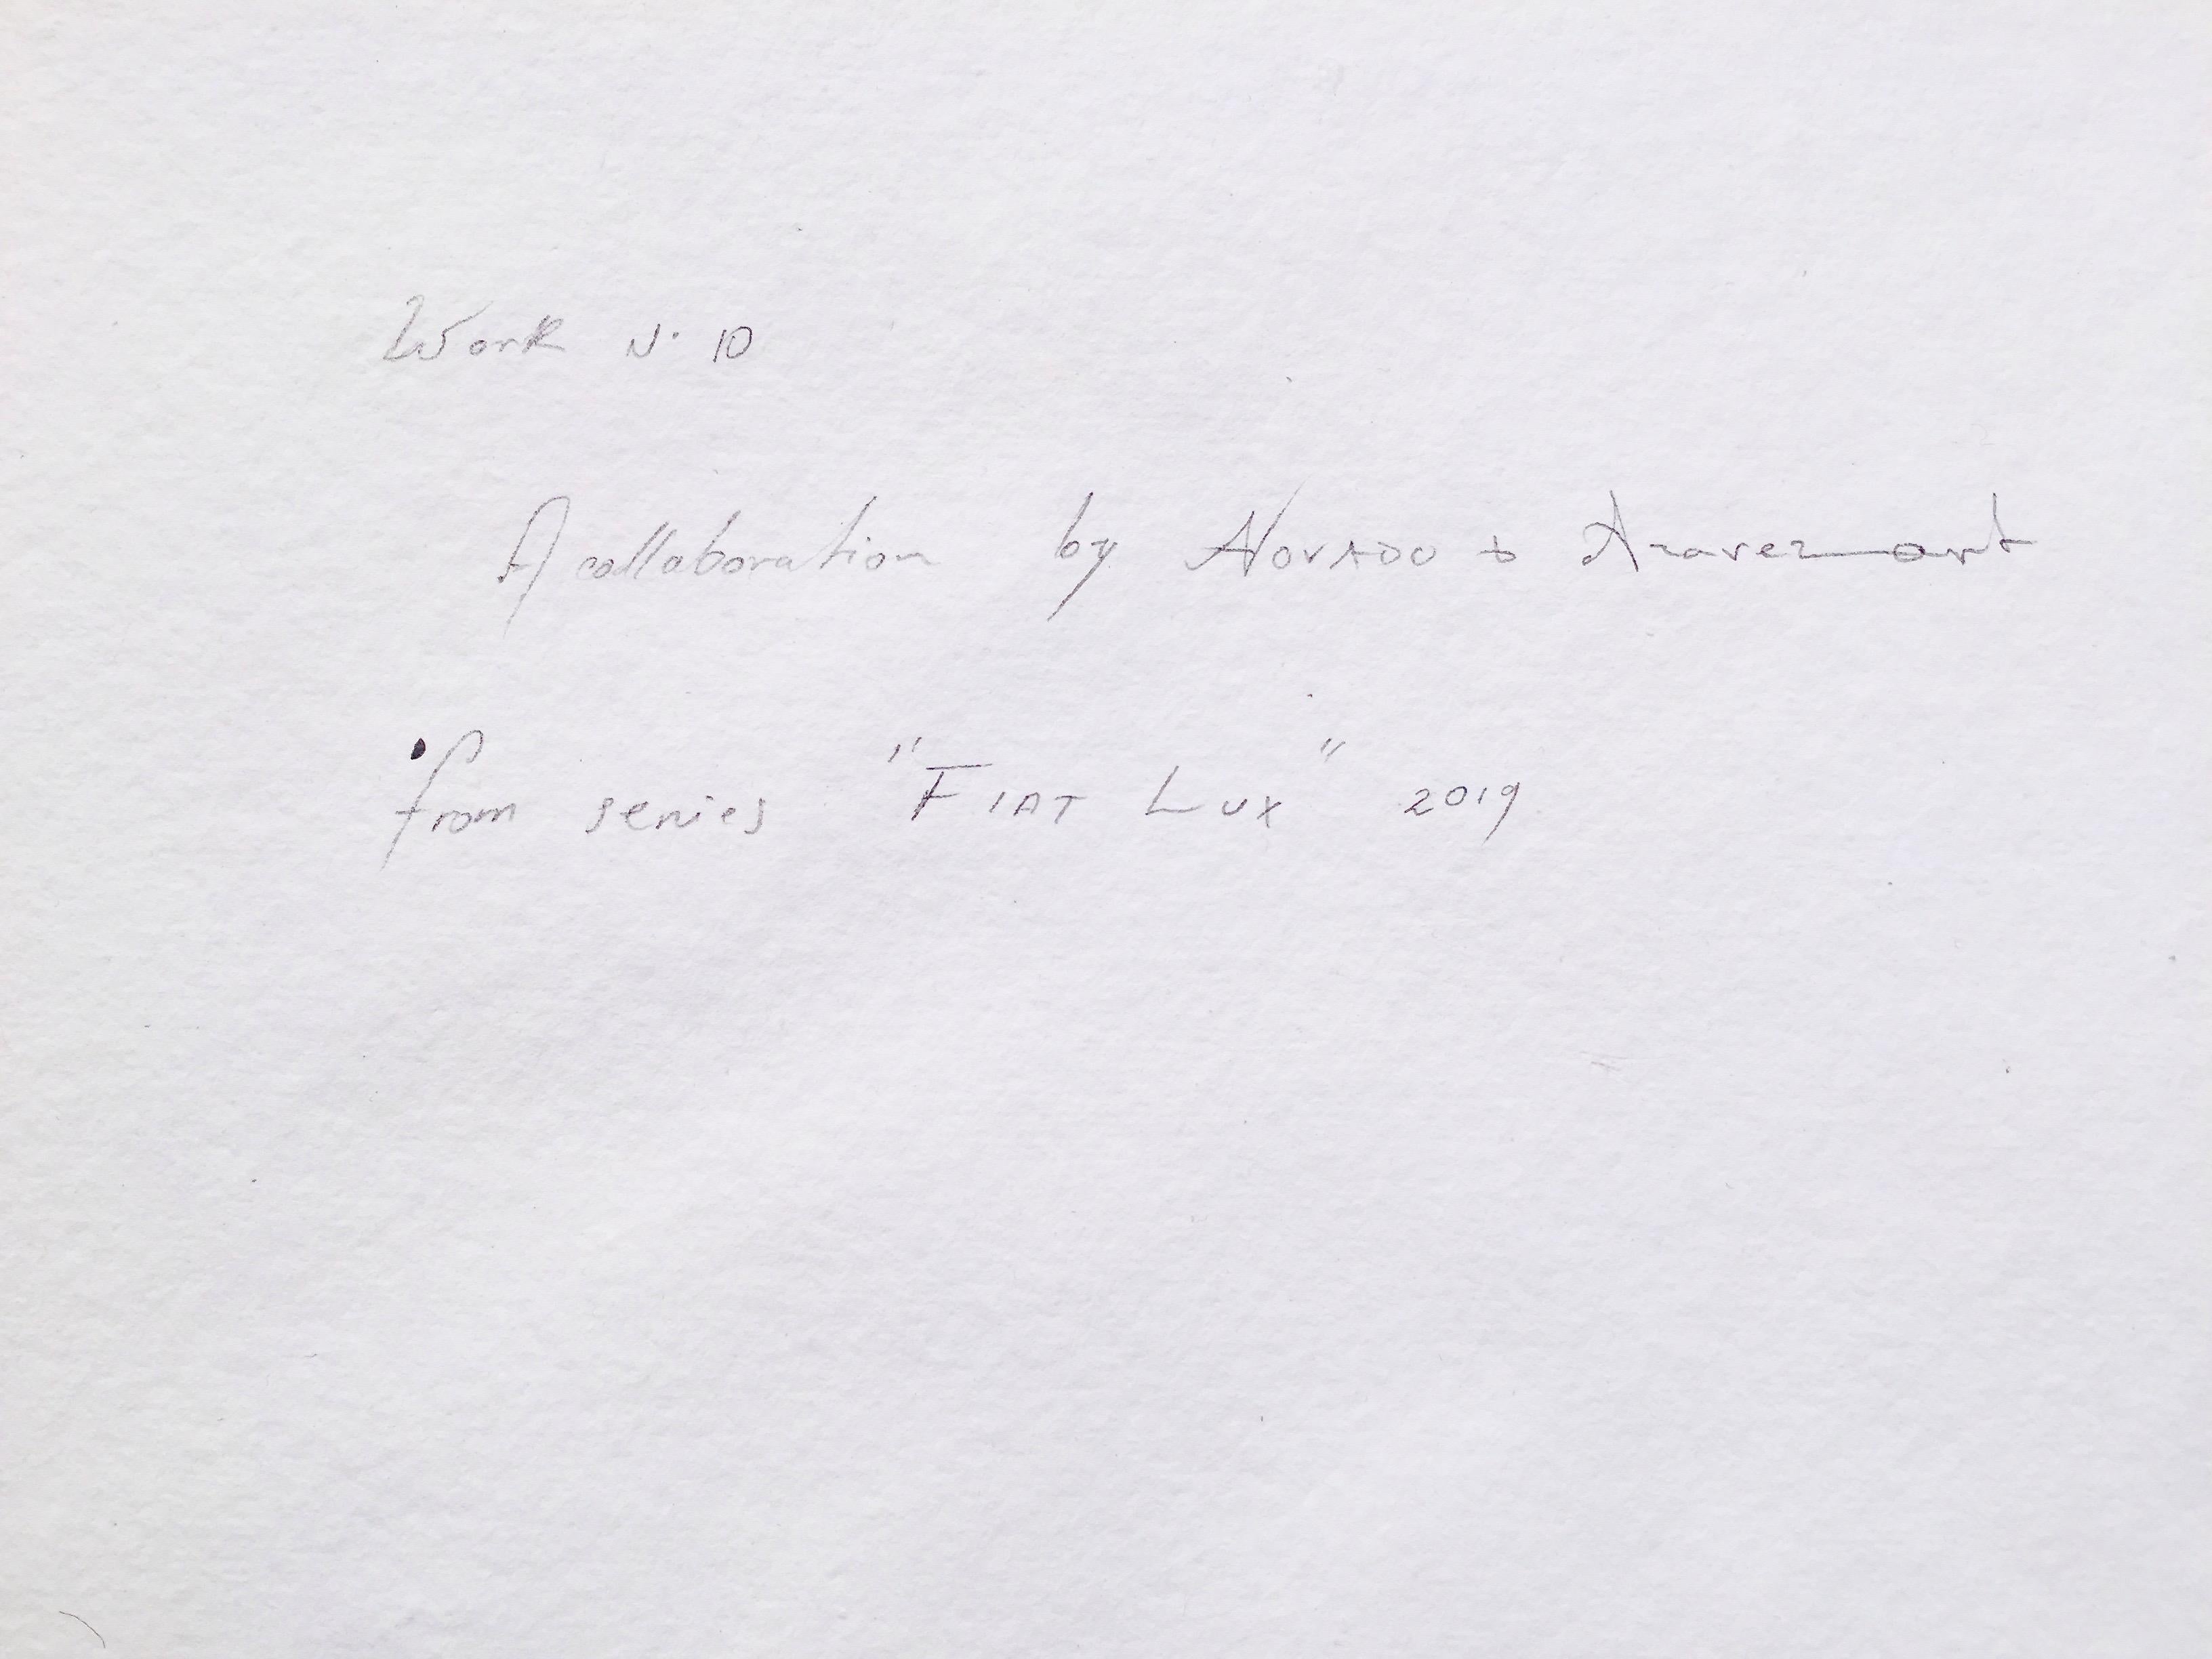 Work N. 10
A collaboration by NOVADO &
from series "FIAT LUX" 2019